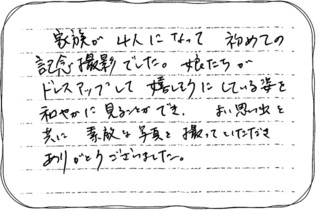 家族が 4人になって 初めての
記念撮影でした。娘たちが
ドレスアップして 嬉しそうにしている姿を
和やかに見ることができ、 よい思い出と
共に 素敵な写真を 撮っていただき
ありがとうございました。